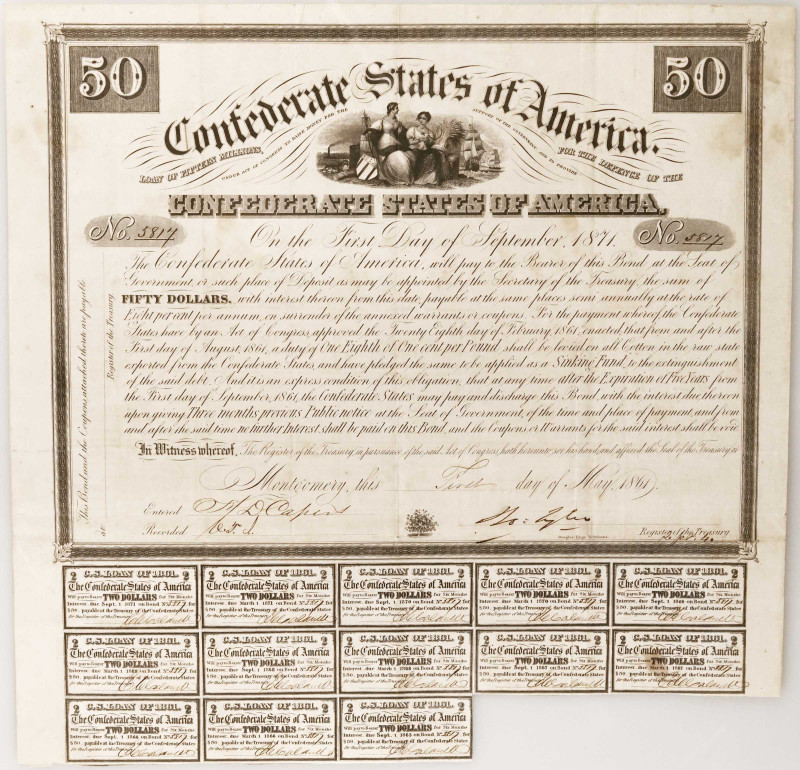 50
50
Confederate States of America.
LOAN OF FIFTEEN MILLIONS,
UNDER ACT OF CONGRESS TO RAISE MONEY FOR THE
SUPPORT OF THE GOVERNMENT AND TO PROVIDE
FOR THE DEFENCE OF THE
CONFEDERATE STATES OF AMERICA,
No. 5817
No. 5817
On the First Day of September, 1871.
The Confederate States of America, will pay to the Bearer of this Bond, at the Seat of
Government, or such place of Deposit as may be appointed by the Secretary of the Treasury, the sum of
FIFTY DOLLARS, with interest thereon from this date, payable at the same places semi annually at the rate of
Eight per cent per annum, on surrender of the annexed warrants or coupons. For the payment whereof the Confederate
States have by an Act of Congress, approved the Twenty Eighth day of February 1861, enacted that from and after the
First day of August 1861, a duty of One Eighth of One cent per Pound shall be levied on all Cotton in the raw state
exported from the Confederate States, and have pledged the same to be applied as a Sinking Fund, to the extinguishment
of the said debt. And it is an express condition of this obligation, that at any time after the Expiration of Five Years from
the First day of September 1861, the Confederate States may pay and discharge this Bond with the interest due thereon
upon giving Three months previous Public notice at the Seat of Government, of the time and place of payment, and from
and after the said time no further Interest shall be paid on this Bond, and the Coupons or Warrants for the said interest shall be void
In Witness whereof, The Register of the Treasury in pursuance of the said Act of Congress, hath hereunto set his hand, and affixed the Seal of the Treasury at
Montgomery, this First day of May, 1861.
Entered
Recorded
Register of the Treasury
This Bond and the Coupons attached thereto are payable
at
Register of the Treasury
2 C.S. LOAN OF 1861. 2
The Confederate States of America
Will pay to Bearer TWO DOLLARS for Six Months
Interest due Sept. 1 1871 on Bond No. 5817 for
$50, payable at the Treasury of the Confederate States
for the Register of the Treasury
2 C.S. LOAN OF 1861. 2
The Confederate States of America
Will pay to Bearer TWO DOLLARS for Six Months
Interest due March 1 1871 on Bond No. 5817 for
$50, payable at the Treasury of the Confederate States
for the Register of the Treasury
2 C.S. LOAN OF 1861. 2
The Confederate States of America
Will pay to Bearer TWO DOLLARS for Six Months
Interest due Sept. 1 1870 on Bond No. 5817 for
$50, payable at the Treasury of the Confederate States
for the Register of the Treasury
2 C.S. LOAN OF 1861. 2
The Confederate States of America
Will pay to Bearer TWO DOLLARS for Six Months
Interest due March 1 1870 on Bond No. 5817 for
$50, payable at the Treasury of the Confederate States
for the Register of the Treasury
2 C.S. LOAN OF 1861. 2
The Confederate States of America
Will pay to Bearer TWO DOLLARS for Six Months
Interest due Sept. 1 1869 on Bond No. 5817 for
$50, payable at the Treasury of the Confederate States
for the Register of the Treasury
2 C.S. LOAN OF 1861. 2
The Confederate States of America
Will pay to Bearer TWO DOLLARS for Six Months
Interest due March 1 1869 on Bond No. 5817 for
$50, payable at the Treasury of the Confederate States
for the Register of the Treasury
2 C.S. LOAN OF 1861. 2
The Confederate States of America
Will pay to Bearer TWO DOLLARS for Six Months
Interest due Sept. 1 1868 on Bond No. 5817 for
$50, payable at the Treasury of the Confederate States
for the Register of the Treasury
2 C.S. LOAN OF 1861. 2
The Confederate States of America
Will pay to Bearer TWO DOLLARS for Six Months
Interest due March 1 1868 on Bond No. 5817 for
$50, payable at the Treasury of the Confederate States
for the Register of the Treasury
2 C.S. LOAN OF 1861. 2
The Confederate States of America
Will pay to Bearer TWO DOLLARS for Six Months
Interest due Sept. 1 1867 on Bond No. 5817 for
$50, payable at the Treasury of the Confederate States
for the Register of the Treasury
2 C.S. LOAN OF 1861. 2
The Confederate States of America
Will pay to Bearer TWO DOLLARS for Six Months
Interest due March 1 1867 on Bond No. 5817 for
$50, payable at the Treasury of the Confederate States
for the Register of the Treasury
2 C.S. LOAN OF 1861. 2
The Confederate States of America
Will pay to Bearer TWO DOLLARS for Six Months
Interest due Sept. 1 1866 on Bond No. 5817 for
$50, payable at the Treasury of the Confederate States
for the Register of the Treasury
2 C.S. LOAN OF 1861. 2
The Confederate States of America
Will pay to Bearer TWO DOLLARS for Six Months
Interest due March 1 1866 on Bond No. 5817 for
$50, payable at the Treasury of the Confederate States
for the Register of the Treasury
2 C.S. LOAN OF 1861. 2
The Confederate States of America
Will pay to Bearer TWO DOLLARS for Six Months
Interest due Sept. 1 1865 on Bond No. 5817 for
$50, payable at the Treasury of the Confederate States
for the Register of the Treasury